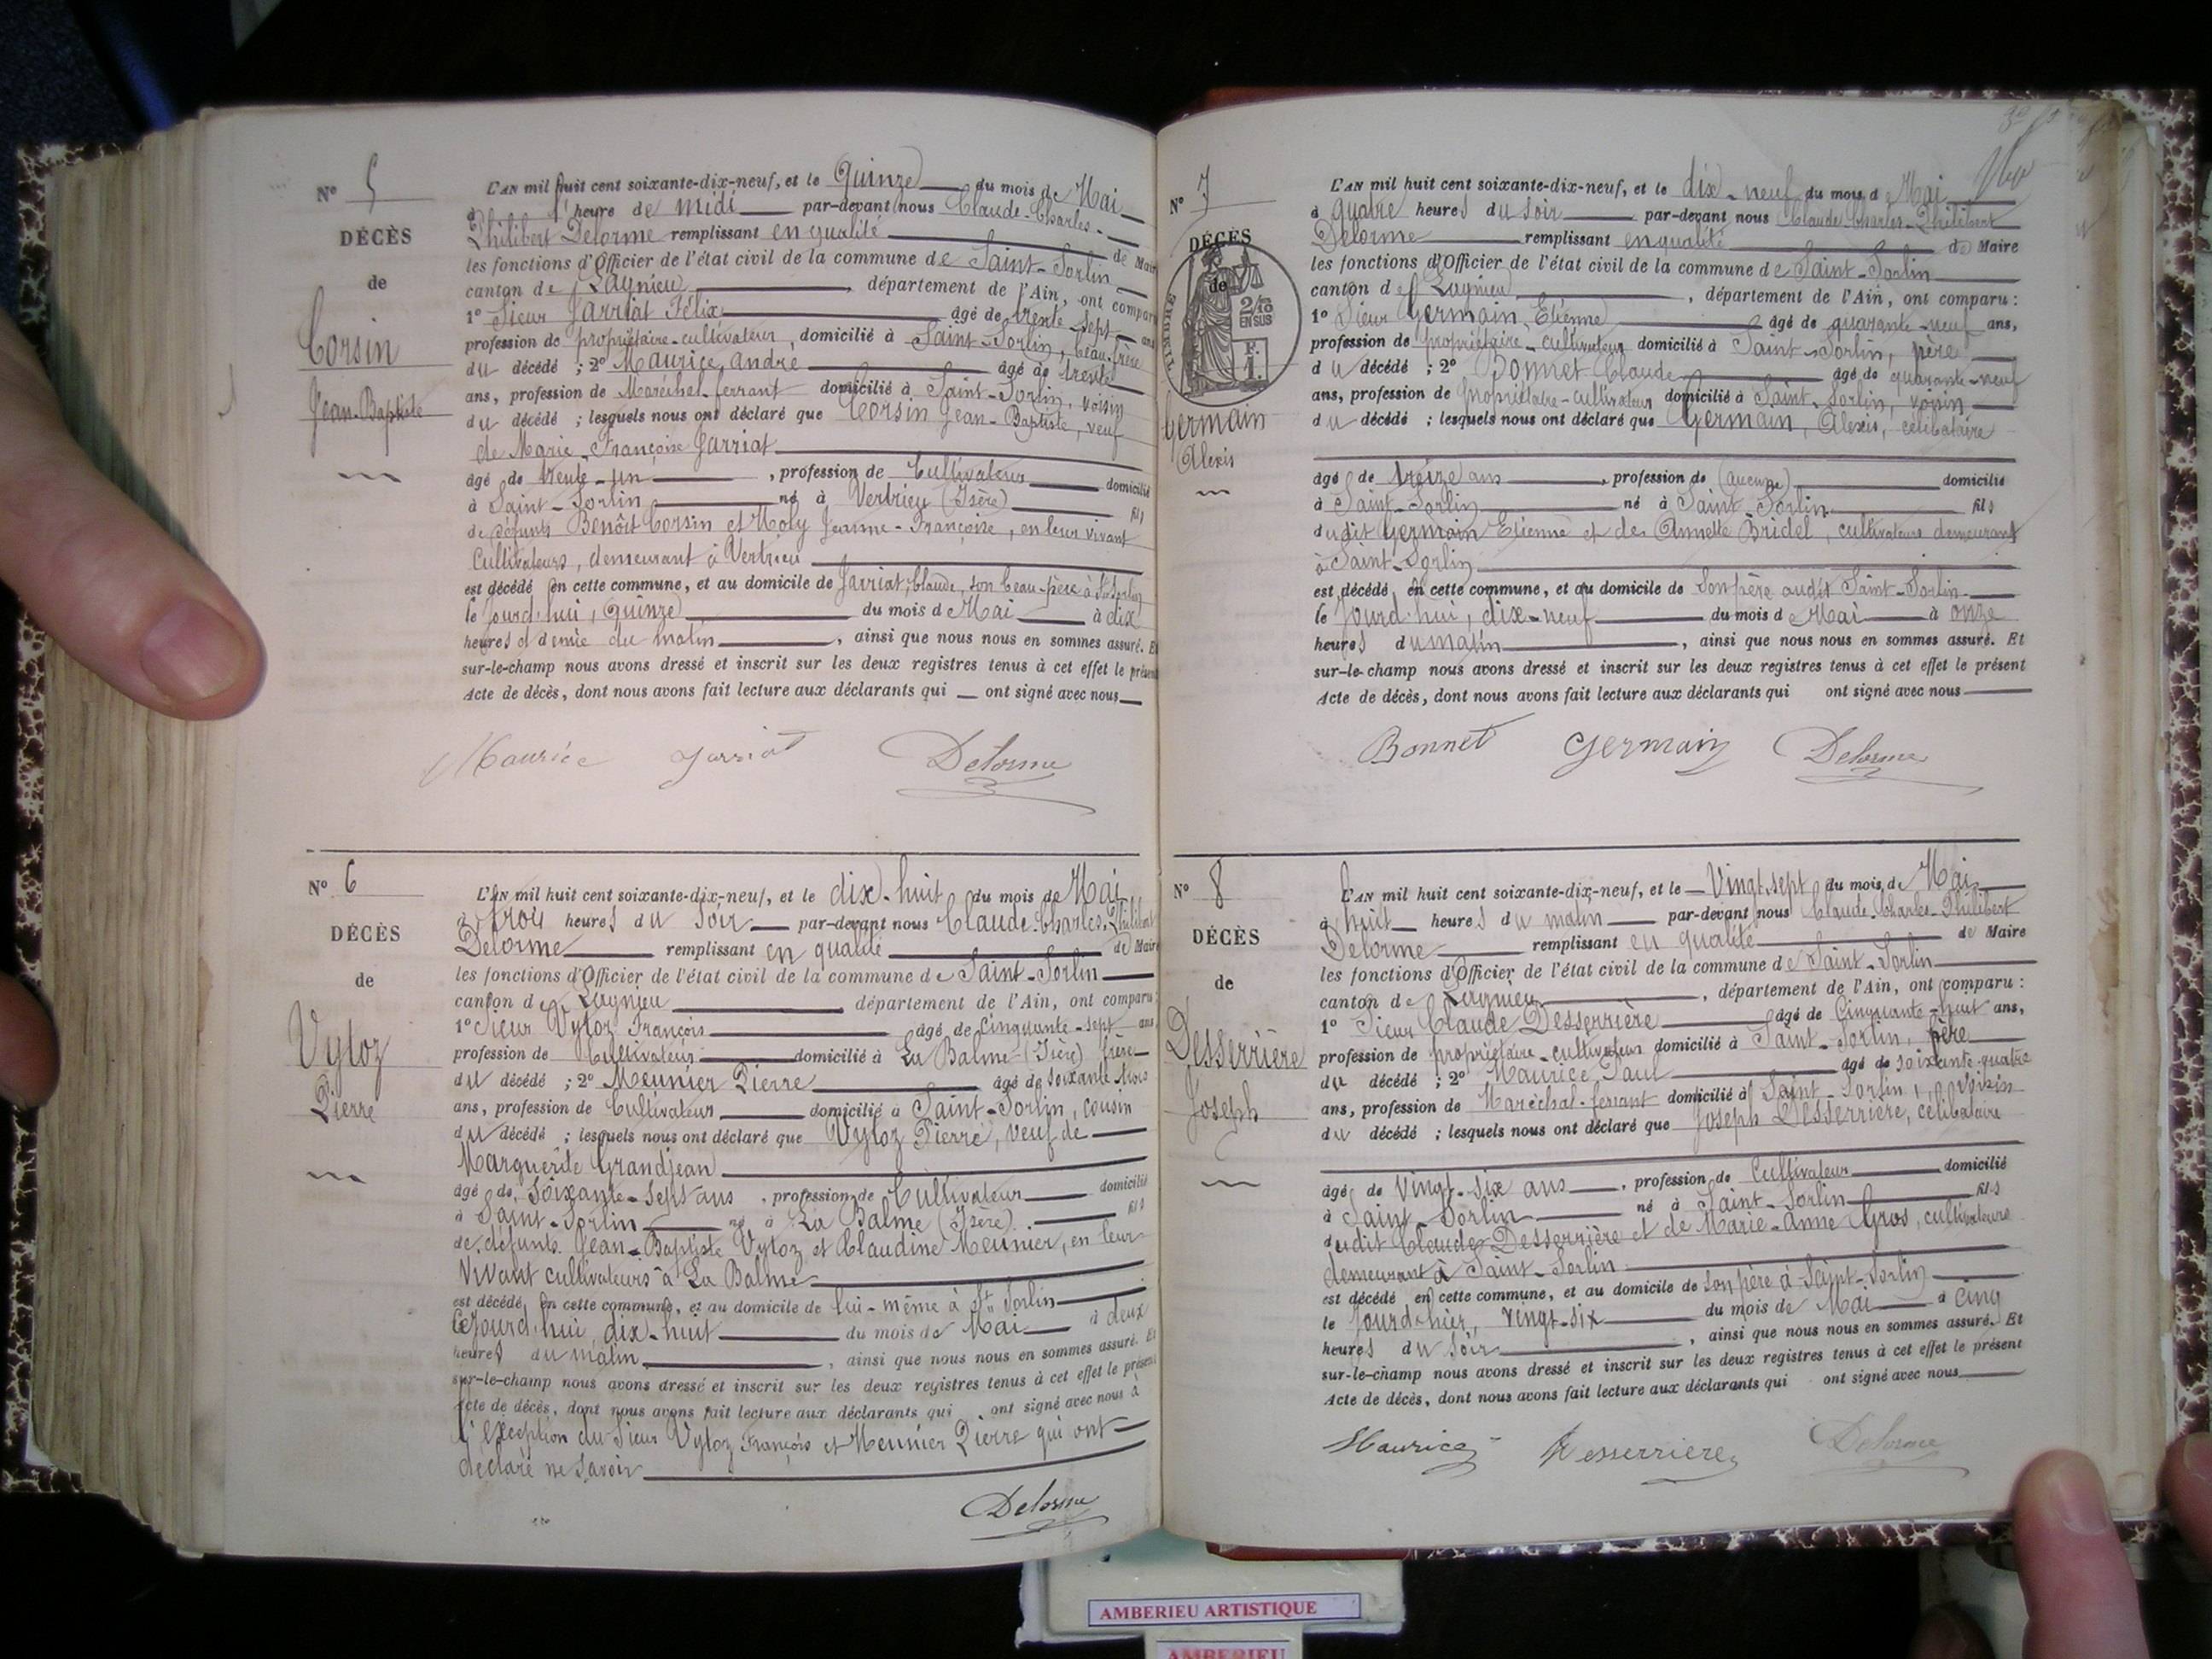 N° 5
DÉCÈS
de
Corsin
Jean-Baptiste
L'AN mil huit cent soixante-dix-neuf, et le Quinze du mois de Mai
à l'heure de midi par-devant nous Claude-Charles-
Philibert Delorme remplissant en qualité de Maire
les fonctions d'Officier de l'état civil de la commune de Saint-Sorlin
canton de Lagnieu, département de l'Ain, ont comparu
1° Sieur Jarriat Félix âgé de trente-sept ans
profession de propriétaire-cultivateur, domicilié à Saint-Sorlin, beau-frère
du décédé ; 2° Maurice André âgé de trente
ans, profession de Maréchal-ferrant domicilié à Saint-Sorlin, voisin
du décédé ; lesquels nous ont déclaré que Corsin Jean-Baptiste, veuf
de Marie-Françoise Jarriat
âgé de trente-un, profession de Cultivateur domicilié
à Saint-Sorlin né à Vertrieu (Isère) fils
de défunts Benoît Corsin et Moly Jeanne-Françoise, en leur vivant
Cultivateurs, demeurant à Vertrieu
est décédé en cette commune, et au domicile de Jarriat, Claude, son beau-père à St Sorlin
le jourd'hui, quinze du mois de Mai à dix
heures et demie du matin, ainsi que nous nous en sommes assuré. Et
sur-le-champ nous avons dressé et inscrit sur les deux registres tenus à cet effet le présent
Acte de décès, dont nous avons fait lecture aux déclarants qui ont signé avec nous
Maurice Jarriat Delorme
N° 6
DÉCÈS
de
Vytoz
Pierre
L'AN mil huit cent soixante-dix-neuf, et le dix-huit du mois de Mai
à trois heures du soir par-devant nous Claude-Charles-Philibert
Delorme remplissant en qualité de Maire
les fonctions d'Officier de l'état civil de la commune de Saint-Sorlin
canton de Lagnieu département de l'Ain, ont comparu :
1° Sieur Vytoz François âgé de Cinquante-sept ans
profession de Cultivateur domicilié à La Balme (Isère) frère
du décédé ; 2° Meunier Pierre âgé de soixante trois
ans, profession de Cultivateur domicilié à Saint-Sorlin, cousin
du décédé ; lesquels nous ont déclaré que Vytoz Pierre, veuf de
Marguerite Grandjean
âgé de soixante-sept ans, profession de Cultivateur domicilié
à Saint-Sorlin né à La Balme (Isère) fils
de défunts Jean-Baptiste Vytoz et Claudine Meunier, en leur
vivant cultivateurs à La Balme
est décédé en cette commune, et au domicile de lui-même à St Sorlin
Cejourd'hui dix-huit du mois de Mai à deux
heures du matin, ainsi que nous nous en sommes assuré. Et
sur-le-champ nous avons dressé et inscrit sur les deux registres tenus à cet effet le présent
Acte de décès, dont nous avons fait lecture aux déclarants qui ont signé avec nous à
l'exception du Sieur Vytoz François et Meunier Pierre qui ont
déclaré ne savoir
Delorme
N° 7
DÉCÈS
de
TIMBRE
2/10
EN SUS
F.
1.
Germain
Alexis
L'AN mil huit cent soixante-dix-neuf, et le dix-neuf du mois de Mai
à quatre heures du soir par-devant nous Claude Charles-Philibert
Delorme remplissant en qualité de Maire
les fonctions d'Officier de l'état civil de la commune de Saint-Sorlin
canton de Lagnieu, département de l'Ain, ont comparu :
1° Sieur Germain Etienne âgé de quarante-neuf ans,
profession de propriétaire-cultivateur domicilié à Saint-Sorlin, père
du décédé ; 2° Bonnet Claude âgé de quarante-neuf
ans, profession de propriétaire-cultivateur domicilié à Saint-Sorlin, voisin
du décédé ; lesquels nous ont déclaré que Germain, Alexis, célibataire
âgé de treize ans, profession de (aucune) domicilié
à Saint-Sorlin né à Saint-Sorlin fils
du dit Germain Etienne et de Annette Bridel, cultivateurs demeurant
à Saint-Sorlin
est décédé en cette commune, et au domicile de son père audit Saint-Sorlin
le jourd'hui, dix-neuf du mois de Mai à onze
heures du matin, ainsi que nous nous en sommes assuré. Et
sur-le-champ nous avons dressé et inscrit sur les deux registres tenus à cet effet le présent
Acte de décès, dont nous avons fait lecture aux déclarants qui ont signé avec nous
Bonnet Germain Delorme
N° 8
DÉCÈS
de
Desserrière
Joseph
L'AN mil huit cent soixante-dix-neuf, et le Vingt-sept du mois de Mai
à huit heures du matin par-devant nous Claude-Charles-Philibert
Delorme remplissant en qualité de Maire
les fonctions d'Officier de l'état civil de la commune de Saint-Sorlin
canton de Lagnieu, département de l'Ain, ont comparu :
1° Sieur Claude Desserrière âgé de Cinquante-huit ans,
profession de propriétaire-cultivateur domicilié à Saint-Sorlin, père
du décédé ; 2° Maurice Paul âgé de soixante-quatre
ans, profession de Maréchal-ferrant domicilié à Saint-Sorlin, voisin
du décédé ; lesquels nous ont déclaré que Joseph Desserrière, célibataire
âgé de Vingt-six ans, profession de Cultivateur domicilié
à Saint-Sorlin né à Saint-Sorlin fils
dudit Claude Desserrière et de Marie-Anne Gros, cultivateurs
demeurant à Saint-Sorlin
est décédé en cette commune, et au domicile de son père à Saint-Sorlin
le jourd'hier, vingt-six du mois de Mai à cinq
heures du soir, ainsi que nous nous en sommes assuré. Et
sur-le-champ nous avons dressé et inscrit sur les deux registres tenus à cet effet le présent
Acte de décès, dont nous avons fait lecture aux déclarants qui ont signé avec nous
Maurice Desserriere Delorme
AMBERIEU ARTISTIQUE
AMBERIEU